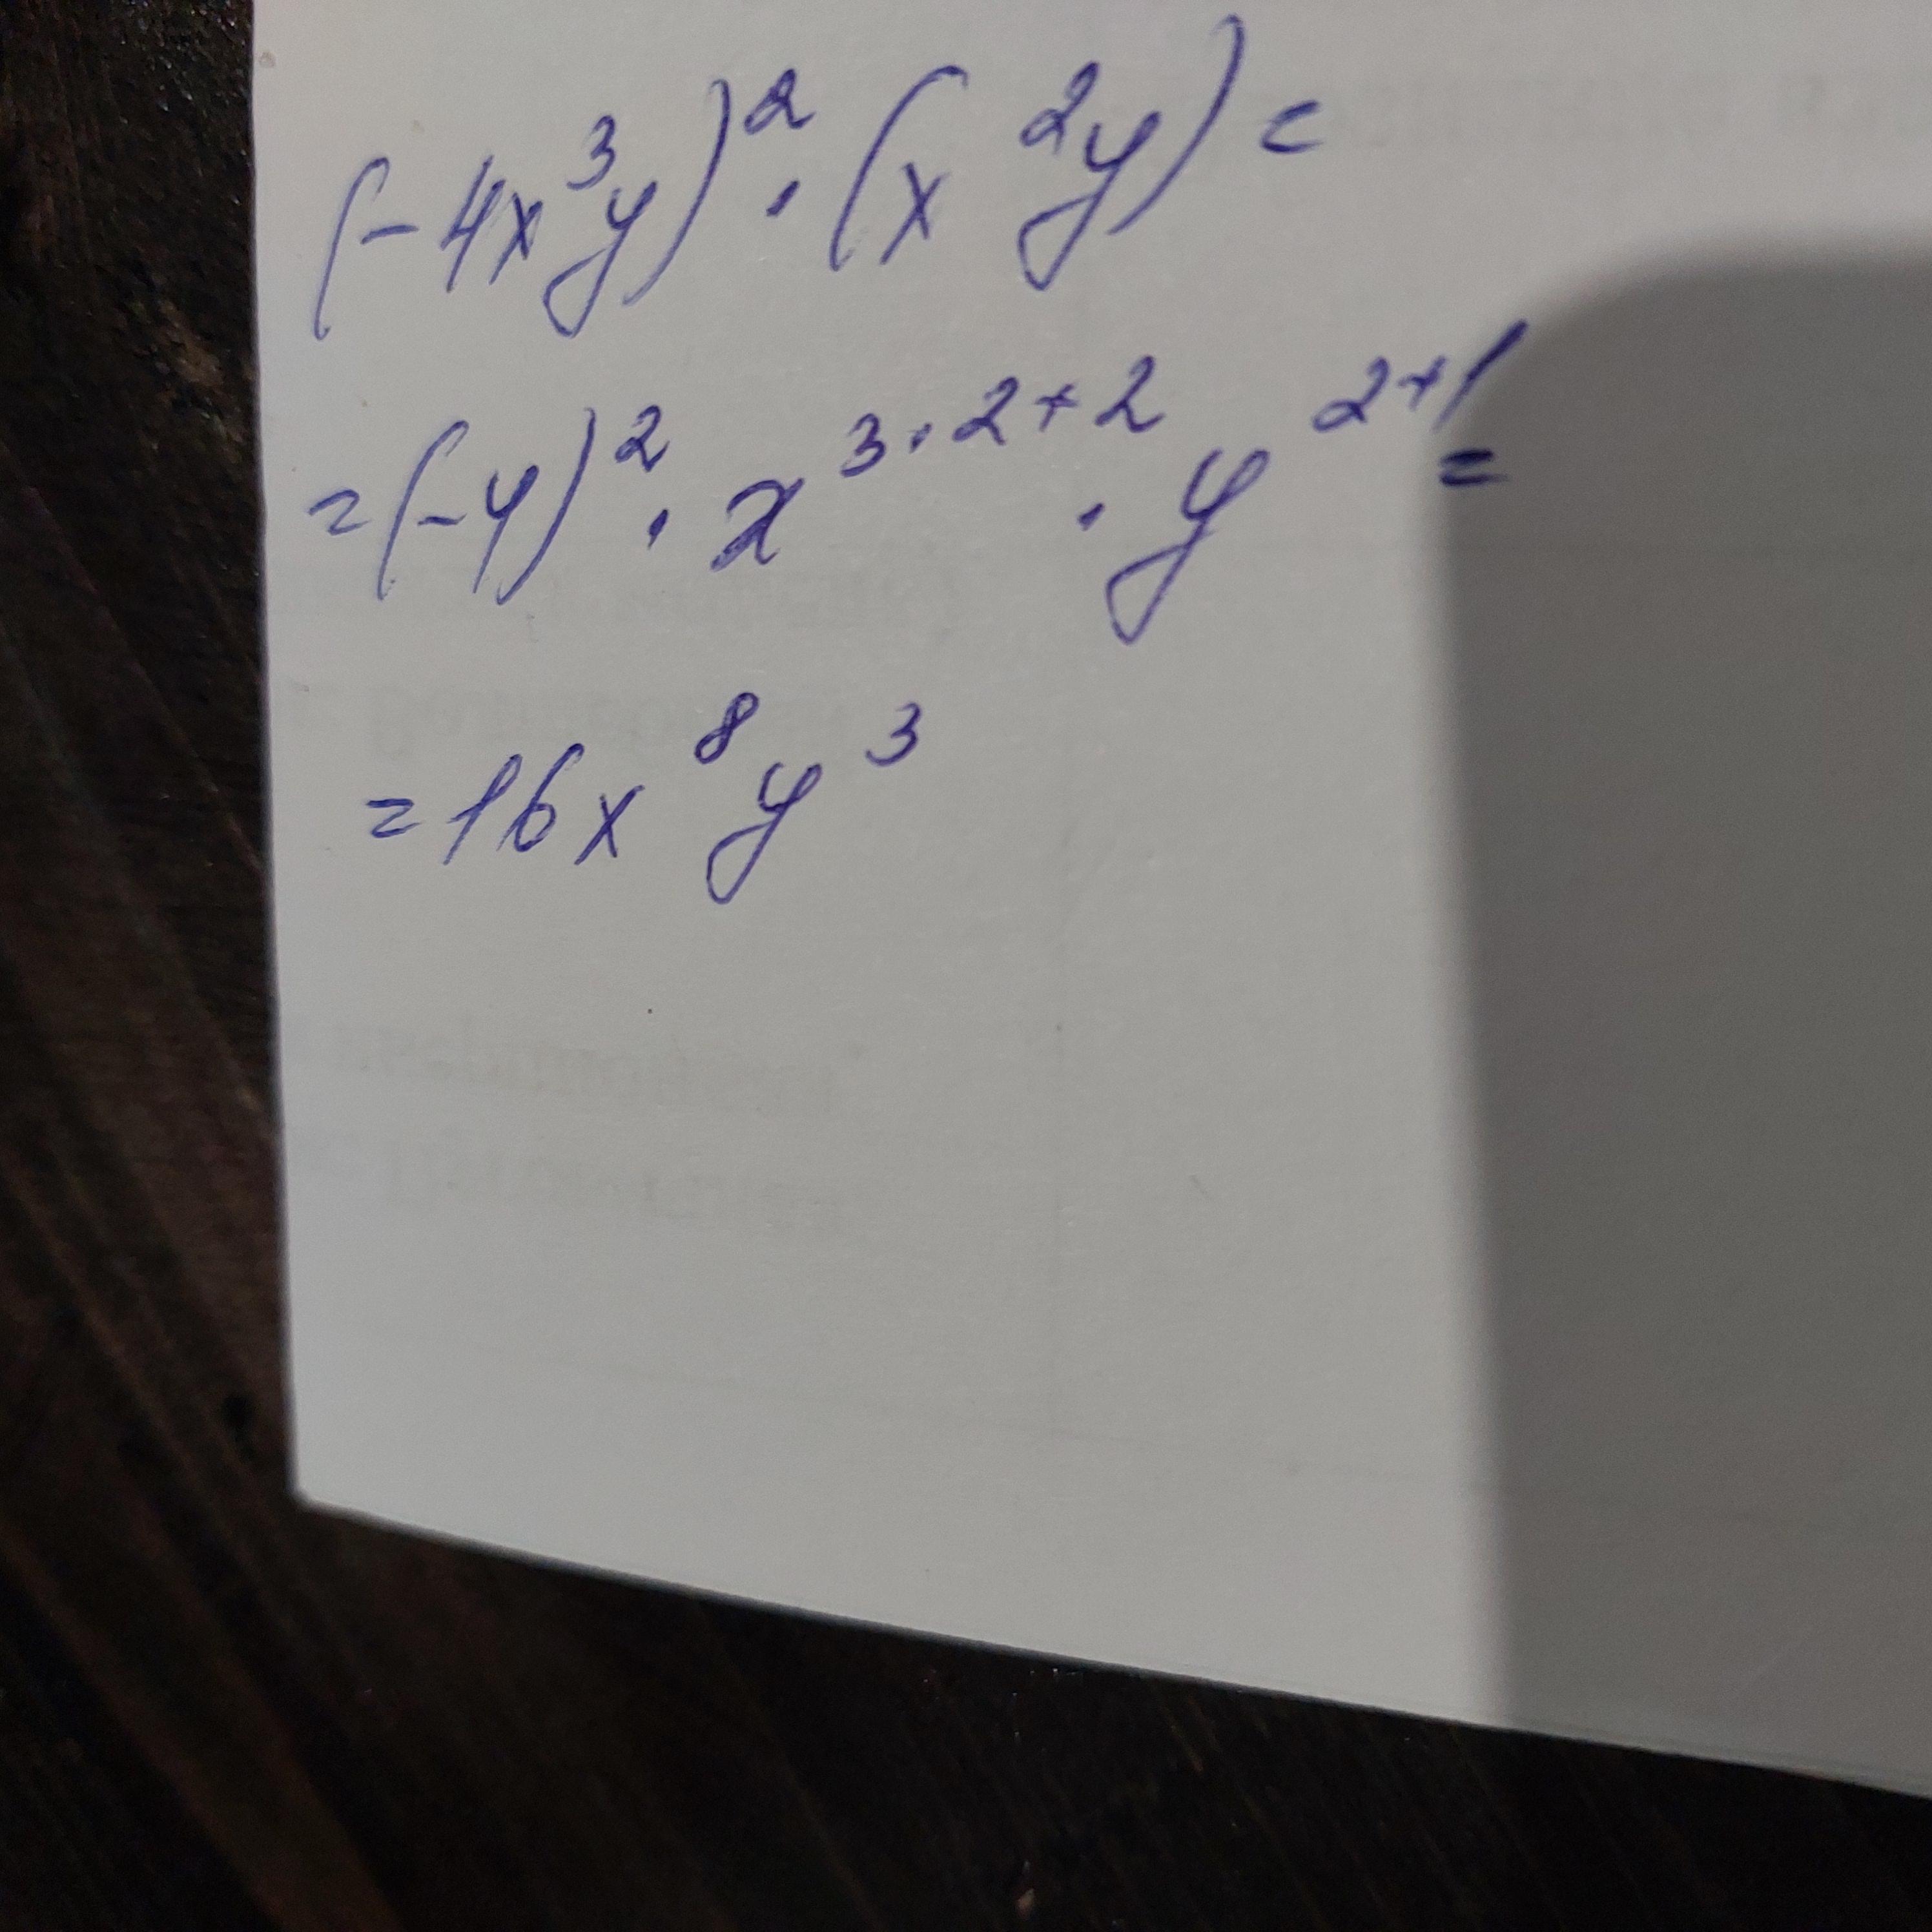 (-4x³y)² · (x²y) =
= (-4)² · x^{3·2+2} · y^{2+1} =
= 16x⁸y³